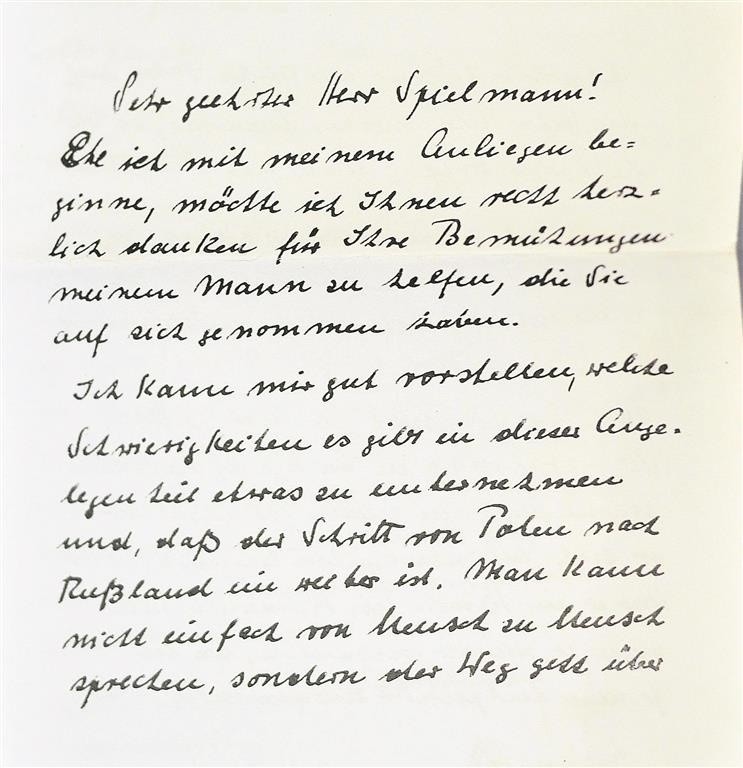 Sehr geehrter Herr Spielmann!
Ehe ich mit meinem Anliegen be=
ginne, möchte ich Ihnen recht herz=
lich danken für Ihre Bemühungen
meinem Mann zu helfen, die Sie
auf sich genommen haben.
Ich kann mir gut vorstellen, welche
Schwierigkeiten es gibt in dieser Ange=
legenheit etwas zu unternehmen
und, daß der Schritt von Polen nach
Rußland ein weiter ist. Man kann
nicht einfach von Mensch zu Mensch
sprechen, sondern der Weg geht über